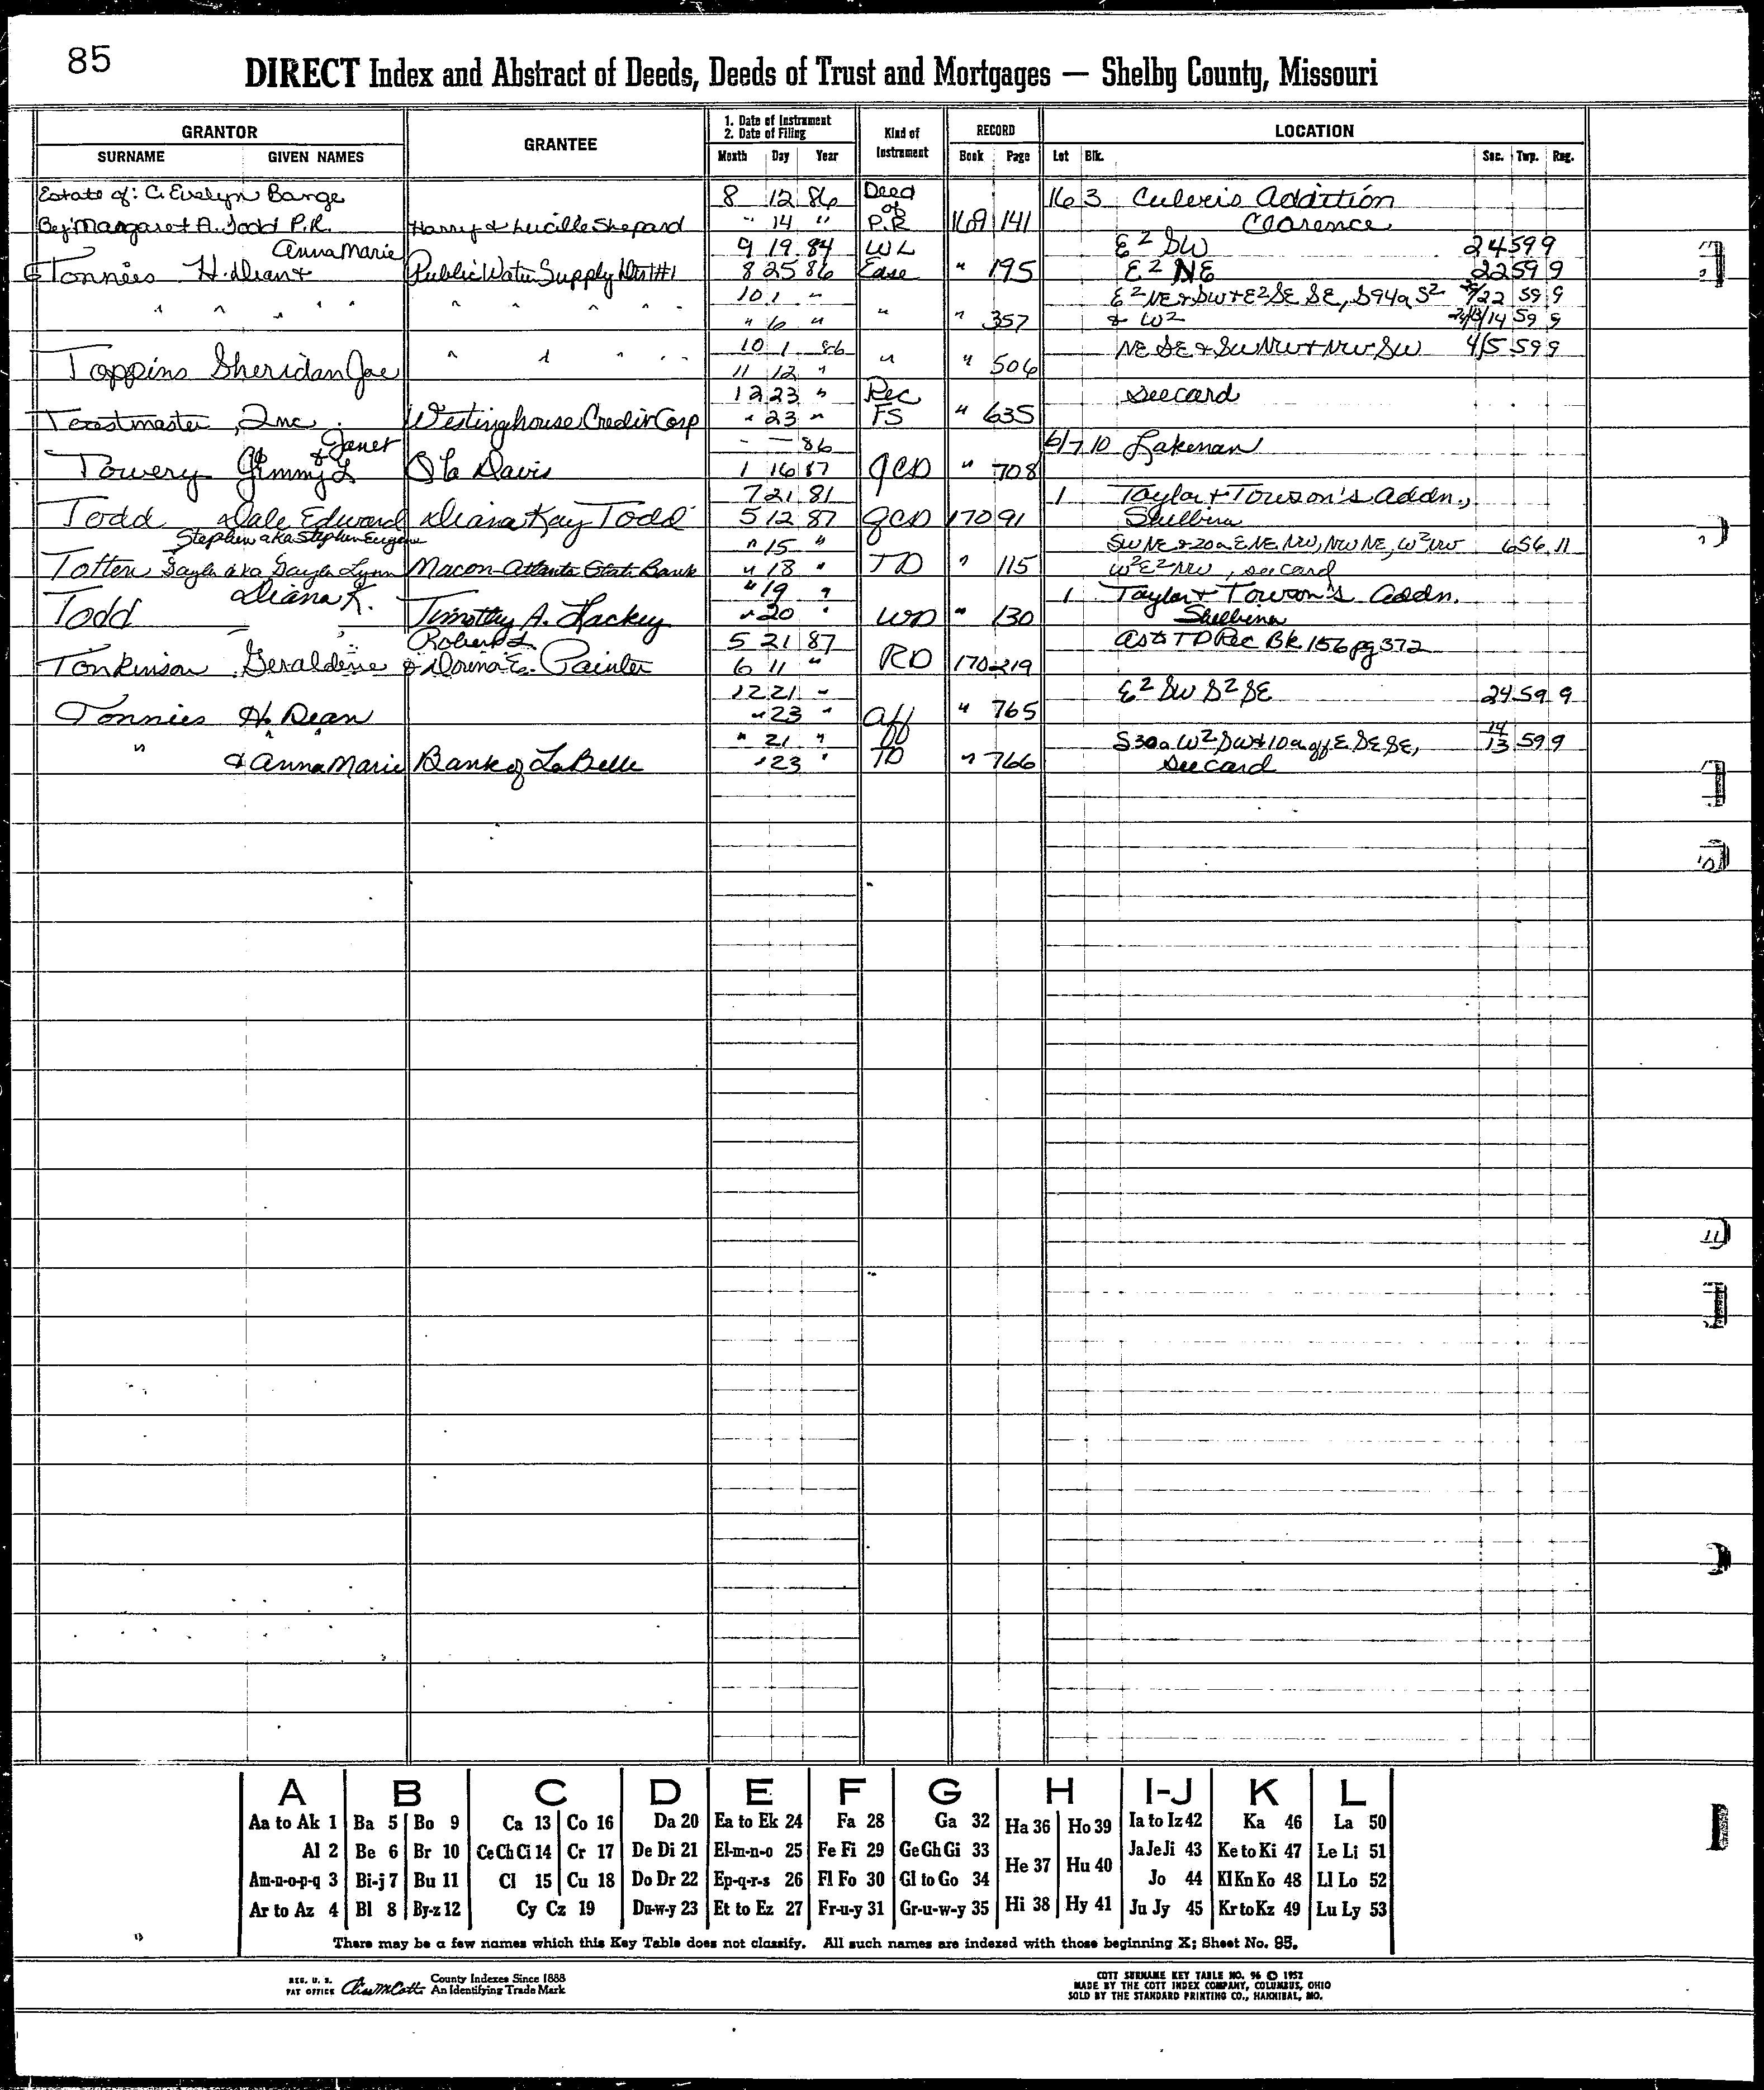 85
DIRECT Index and Abstract of Deeds, Deeds of Trust and Mortgages — Shelby County, Missouri
GRANTOR
SURNAME GIVEN NAMES
GRANTEE
1. Date of Instrument
2. Date of Filing
Month Day Year
Kind of Instrument
RECORD
Book Page
LOCATION
Lot Blk. Sec. Twp. Rng.
Estate of: C. Evelyn Barge 8 12 86 Deed of 16 3 Culver's Addition
By: Margaret A. Todd P.R. Harry & Lucille Shepard " 14 " P.R 169 141 Clarence
Anna Marie 9 19 84 WL E2 SW 24 59 9
Tonnies H. Dean & Public Water Supply Dist #1 8 25 86 Ease " 195 E2 NE 22 59 9
10 1 " E2 NE & SW & E2 SE SE, S94a S2 22 59 9
" " " " " " " " " 6 " " " 357 & W2 14 59 9
10 1 86 NE SE & SW NW & NW SW 4/5 59 9
Toppins Sheridan Joe " " " " " 11 12 " " " 506
12 23 " Rec see card
Toastmaster, Inc. Westinghouse Credit Corp " 23 " FS " 635
& Janet - - 86 6/7 10 Lakenan
Towery Jimmy L Davis 1 16 87 QCD " 708
7 21 81 1 Taylor & Towson's Addn.,
Todd Dale Edward Diana Kay Todd 5 12 87 QCD 170 91 Shelbina
Stephen aka Stephen Eugene " 15 " SW NE & 20a E NE NW, NW NE, W2 NW 6 56 11
Totten Gayla aka Gayla Lynn Macon-Atlanta State Bank " 18 " TD " 115 W2 E2 NW, see card
Diana K. " 19 " 1 Taylor & Towson's Addn.
Todd Timothy A. Hackey " 20 " WD " 130 Shelbina
Robert L. 5 21 87 as to TD Rec Bk 156 pg 372
Tonkinson Geraldine & Dorena E. Painter 6 11 " RD 170 219
12 21 " E2 SW S2 SE 24 59 9
Tonnies H. Dean " 23 " Aff " 765
" " 21 " S30a W2 SW & 10a off E SE SE, 14/13 59 9
& Anna Marie Bank of LaBelle " 23 " TD " 766 see card
A B C D E F G H I-J K L
Aa to Ak 1 Ba 5 Bo 9 Ca 13 Co 16 Da 20 Ea to Ek 24 Fa 28 Ga 32 Ha 36 Ho 39 Ia to Iz 42 Ka 46 La 50
Al 2 Be 6 Br 10 Ce Ch Ci 14 Cr 17 De Di 21 El-m-n-o 25 Fe Fi 29 Ge Gh Gi 33 He 37 Hu 40 Ja Je Ji 43 Ke to Ki 47 Le Li 51
Am-n-o-p-q 3 Bi-j 7 Bu 11 Cl 15 Cu 18 Do Dr 22 Ep-q-r-s 26 Fl Fo 30 Gl to Go 34 Jo 44 Kl Kn Ko 48 Ll Lo 52
Ar to Az 4 Bl 8 By-z 12 Cy Cz 19 Du-w-y 23 Et to Ez 27 Fr-u-y 31 Gr-u-w-y 35 Hi 38 Hy 41 Ju Jy 45 Kr to Kz 49 Lu Ly 53
There may be a few names which this Key Table does not classify. All such names are indexed with those beginning X; Sheet No. 95.
REG. U. S. PAT OFFICE County Indexes Since 1888 An Identifying Trade Mark
COTT SURNAME KEY TABLE NO. 96 © 1952
MADE BY THE COTT INDEX COMPANY, COLUMBUS, OHIO
SOLD BY THE STANDARD PRINTING CO., HANNIBAL, MO.